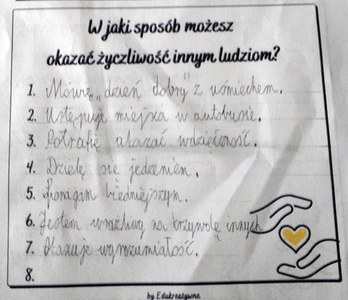 W jaki sposób możesz
okazać życzliwość innym ludziom?
1. Mówię „dzień dobry" z uśmiechem.
2. Ustępuję miejsca w autobusie.
3. Potrafię okazać wdzięczność.
4. Dzielę się jedzeniem.
5. Pomagam biedniejszym.
6. Jestem wrażliwy na krzywdę innych
7. Okazuję wyrozumiałość.
8.
by Edukreatywna